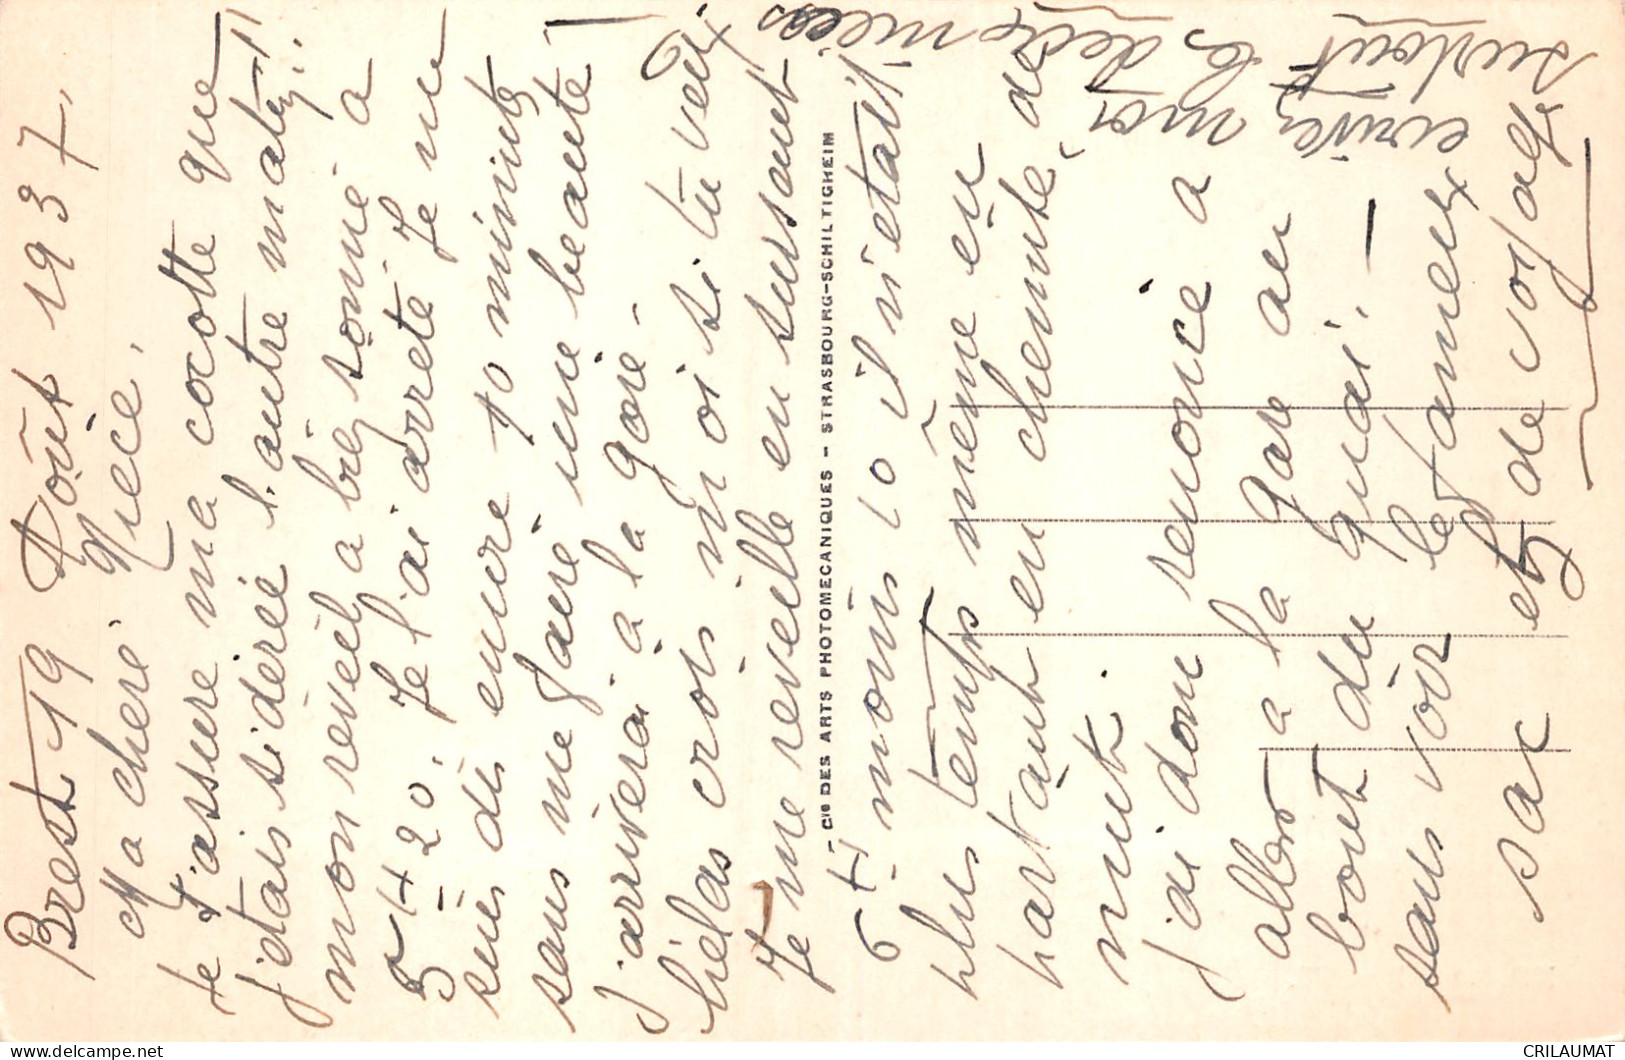 Brest 19 Août 1937.
Ma chère Nièce,
Je t'assure ma cocotte que
j'etais sidereé l'autre matin!!
mon reveèl a bien sonné a
5H20. Je l'ai arreté Je me
suis dis encore 10 minuts
sans me faire une beauté
J'arriverai a la gare -
hélas crois moi si tu veux
Je me reveille en sursaut
6H moins 10 il n'etait
plus temps même en
partant en chemise de
nuit.
j'ai donc renoncé a
aller a la gare au
bout du quai. -
sans voir le fameux
sac et de voyage
ecrivez moi
surtout
Cie DES ARTS PHOTOMECANIQUES - STRASBOURG-SCHILTIGHEIM
CRILAUMAT